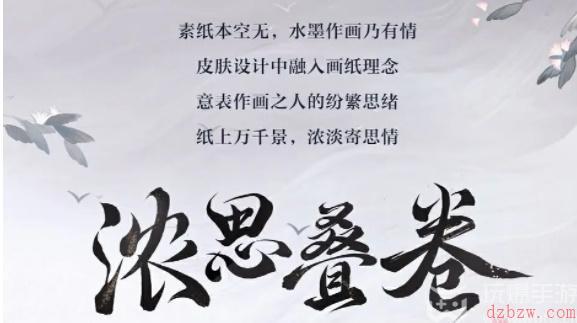 素纸本空无，水墨作画乃有情
皮肤设计中融入画纸理念
意表作画之人的纷繁思绪
纸上万千景，浓淡寄思情
浓思叠卷
玩爆手游
dzbzw.com